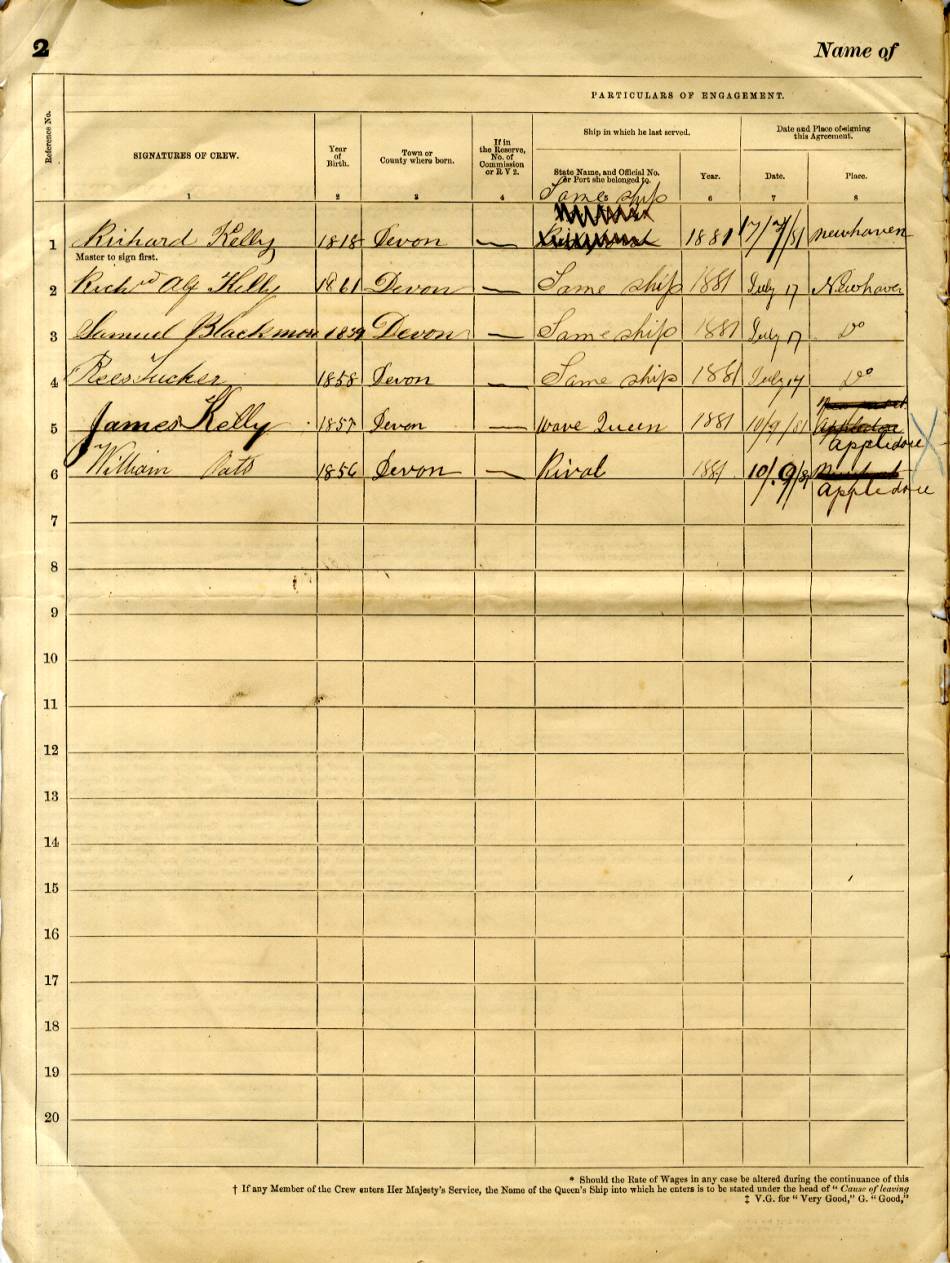 2
Name of
PARTICULARS OF ENGAGEMENT.
Reference No.
SIGNATURES OF CREW.
Year of Birth.
Town or County where born.
If in the Reserve, No. of Commission or R V 2.
Ship in which he last served.
State Name, and Official No. or Port she belonged to.
Year.
Date and Place of signing this Agreement.
Date.
Place.
1 2 3 4 6 7 8
Same ship
1 Richard Kelly 1818 Devon — 1881 17/7/81 Newhaven
Master to sign first.
2 Richd Alf Kelly 1861 Devon — Same ship 1881 July 17 Newhaven
3 Samuel Blackmore 1859 Devon — Same ship 1881 July 17 Do
4 Rees Tucker 1858 Devon — Same ship 1881 July 17 Do
5 James Kelly 1857 Devon — Wave Queen 1881 10/9/81 Appledore
Appledore
6 William 1856 Devon — Rival 1881 10/9/81
Appledore
7
8
9
10
11
12
13
14
15
16
17
18
19
20
* Should the Rate of Wages in any case be altered during the continuance of this
† If any Member of the Crew enters Her Majesty's Service, the Name of the Queen's Ship into which he enters is to be stated under the head of "Cause of leaving
‡ V.G. for "Very Good," G. "Good,"